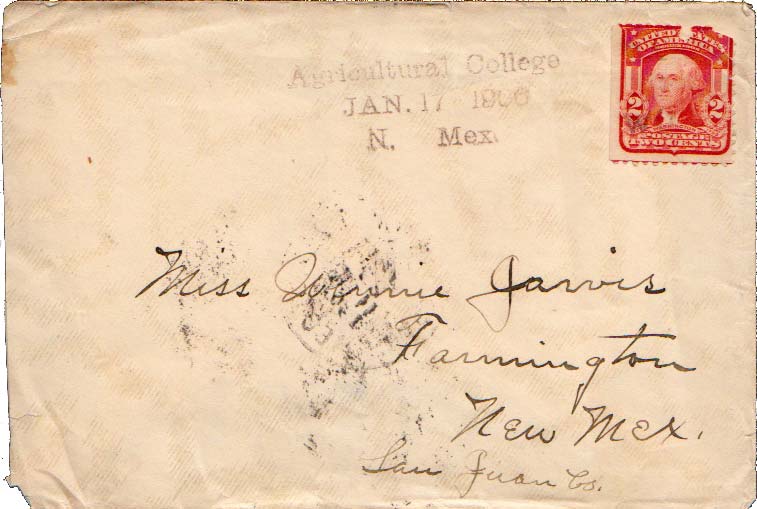 Agricultural College
JAN. 17 1906
N. Mex.
UNITED STATES
OF AMERICA
2 2
POSTAGE
TWO CENTS
Miss Winnie Jarvis
Farmington
New Mex.
San Juan Co.